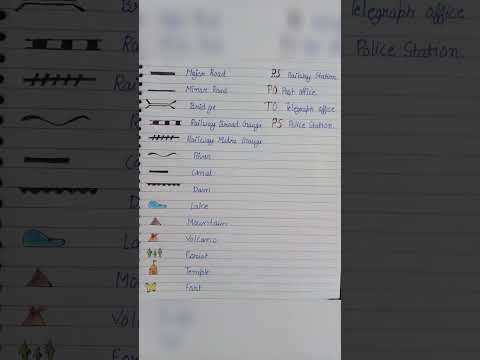 Major Road
Minor Road
Bridge
Railway Broad Gauge
Railway Metre Gauge
River
Canal
Dam
Lake
Mountain
Volcano
Forest
Temple
Fort
PS Railway Station
PO Post office
TO Telegraph office
PS Police Station
Telegraph office
Police Station